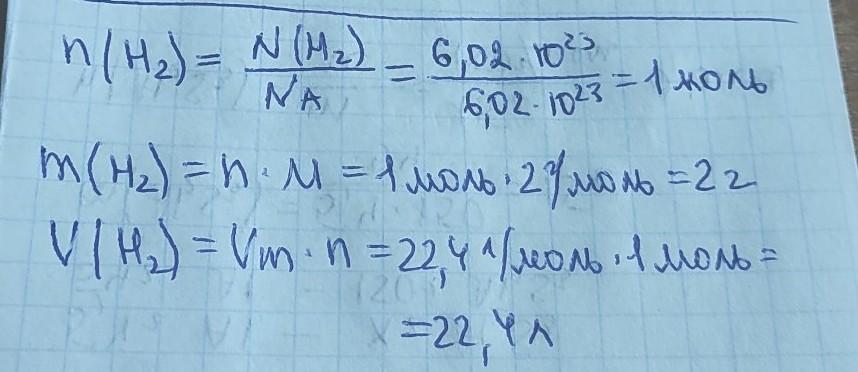 n(H₂) = N(H₂)/NA = 6,02·10²³/6,02·10²³ = 1 моль
m(H₂) = n · M = 1 моль · 2 г/моль = 2 г
V(H₂) = Vm · n = 22,4 л/моль · 1 моль =
= 22,4 л